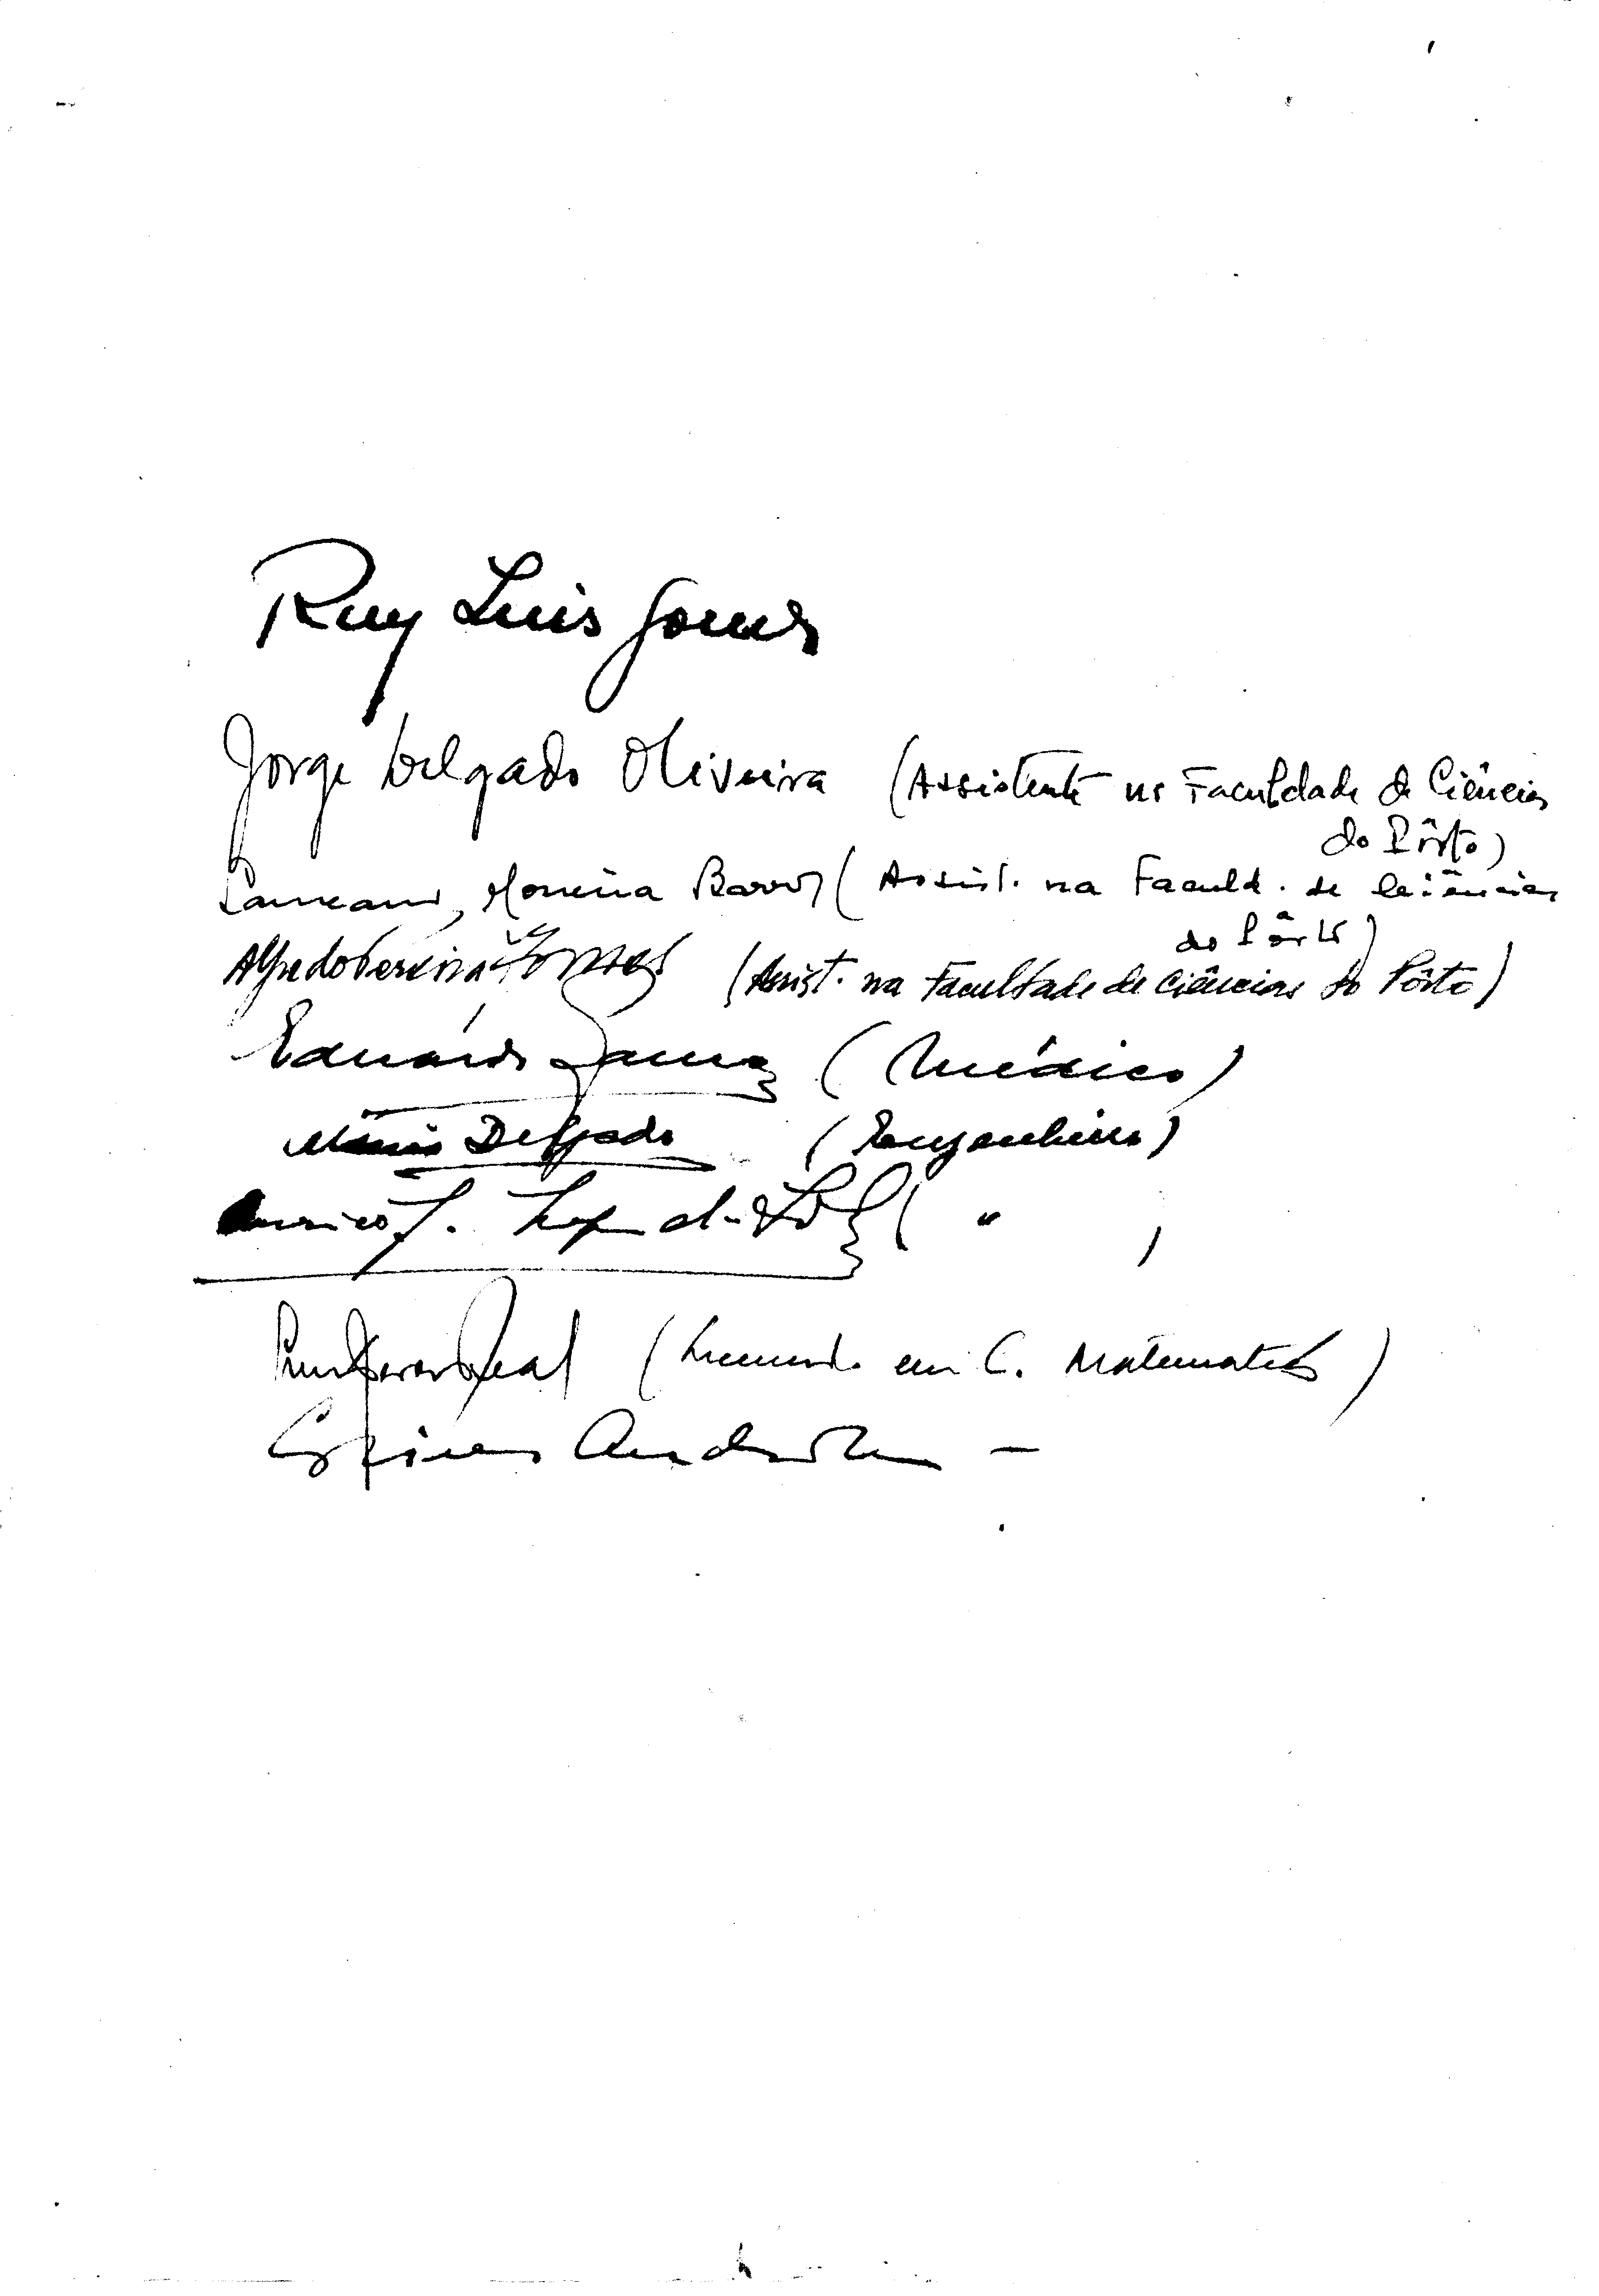 Ruy Luis Gomes
Jorge Delgado Oliveira (Assistente na Faculdade de Ciências
do Pôrto)
Laureano Moreira Barros (Assist. na Faculd. de Ciências
do Pôrto)
Alfredo Pereira Gomes (Assist. na Faculdade de Ciências do Pôrto)
Eduardo (Médico)
Mário Delgado (Engenheiro)
J. ( " )
Leal (Licenciado em C. Matematicas)
Andrade